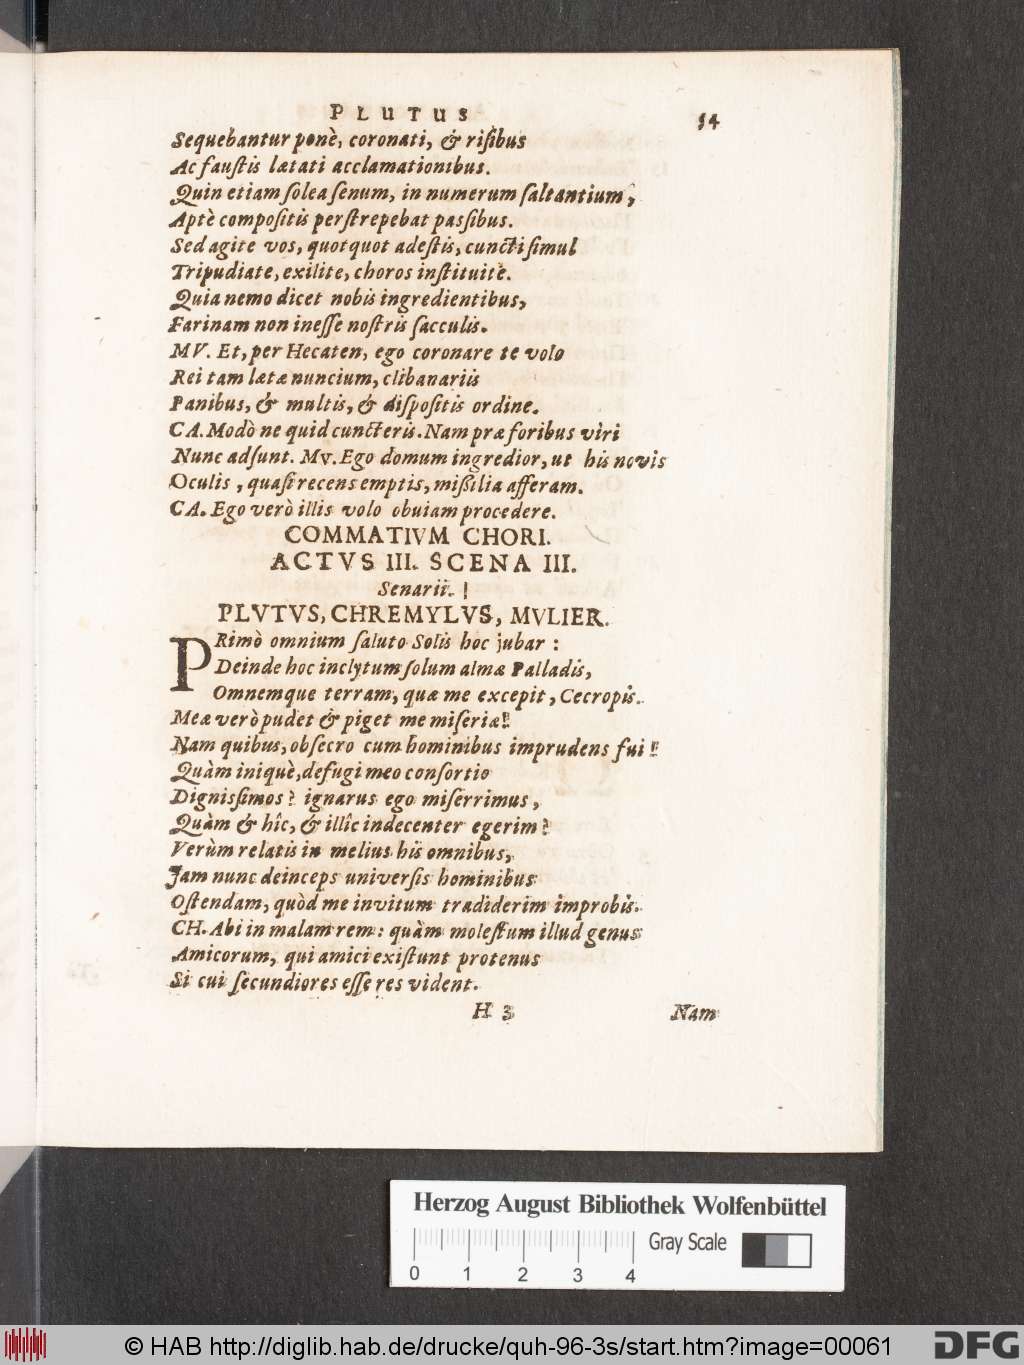 PLUTUS 54
Sequebantur ponè, coronati, & risibus
Ac faustis lætati acclamationibus.
Quin etiam solea senum, in numerum saltantium,
Aptè compositis perstrepebat passibus.
Sed agite vos, quotquot adestis, cuncti simul
Tripudiate, exilite, choros instituite.
Quia nemo dicet nobis ingredientibus,
Farinam non inesse nostris sacculis.
MV. Et, per Hecaten, ego coronare te volo
Rei tam lætæ nuncium, clibanariis
Panibus, & multis, & dispositis ordine.
CA. Modò ne quid cuncteris. Nam præ foribus viri
Nunc adsunt. Mv. Ego domum ingredior, ut his novis
Oculis, quasi recens emptis, missilia afferam.
CA. Ego verò illis volo obviam procedere.
COMMATIVM CHORI.
ACTVS III. SCENA III.
Senarii.
PLVTVS, CHREMYLVS, MVLIER.
PRimò omnium saluto Solis hoc jubar:
Deinde hoc inclytum solum almæ Palladis,
Omnemque terram, quæ me excepit, Cecropis.
Meæ verò pudet & piget me miseriæ!
Nam quibus, obsecro cum hominibus imprudens fui!
Quàm iniquè, defugi meo consortio
Dignissimos? ignarus ego miserrimus,
Quàm & hîc, & illîc indecenter egerim?
Verùm relatis in melius his omnibus,
Jam nunc deinceps universis hominibus
Ostendam, quòd me invitum tradiderim improbis.
CH. Abi in malam rem: quàm molestum illud genus
Amicorum, qui amici existunt protenus
Si cui secundiores esse res vident.
H 3 Nam
Herzog August Bibliothek Wolfenbüttel
Gray Scale
0 1 2 3 4
© HAB http://diglib.hab.de/drucke/quh-96-3s/start.htm?image=00061
DFG